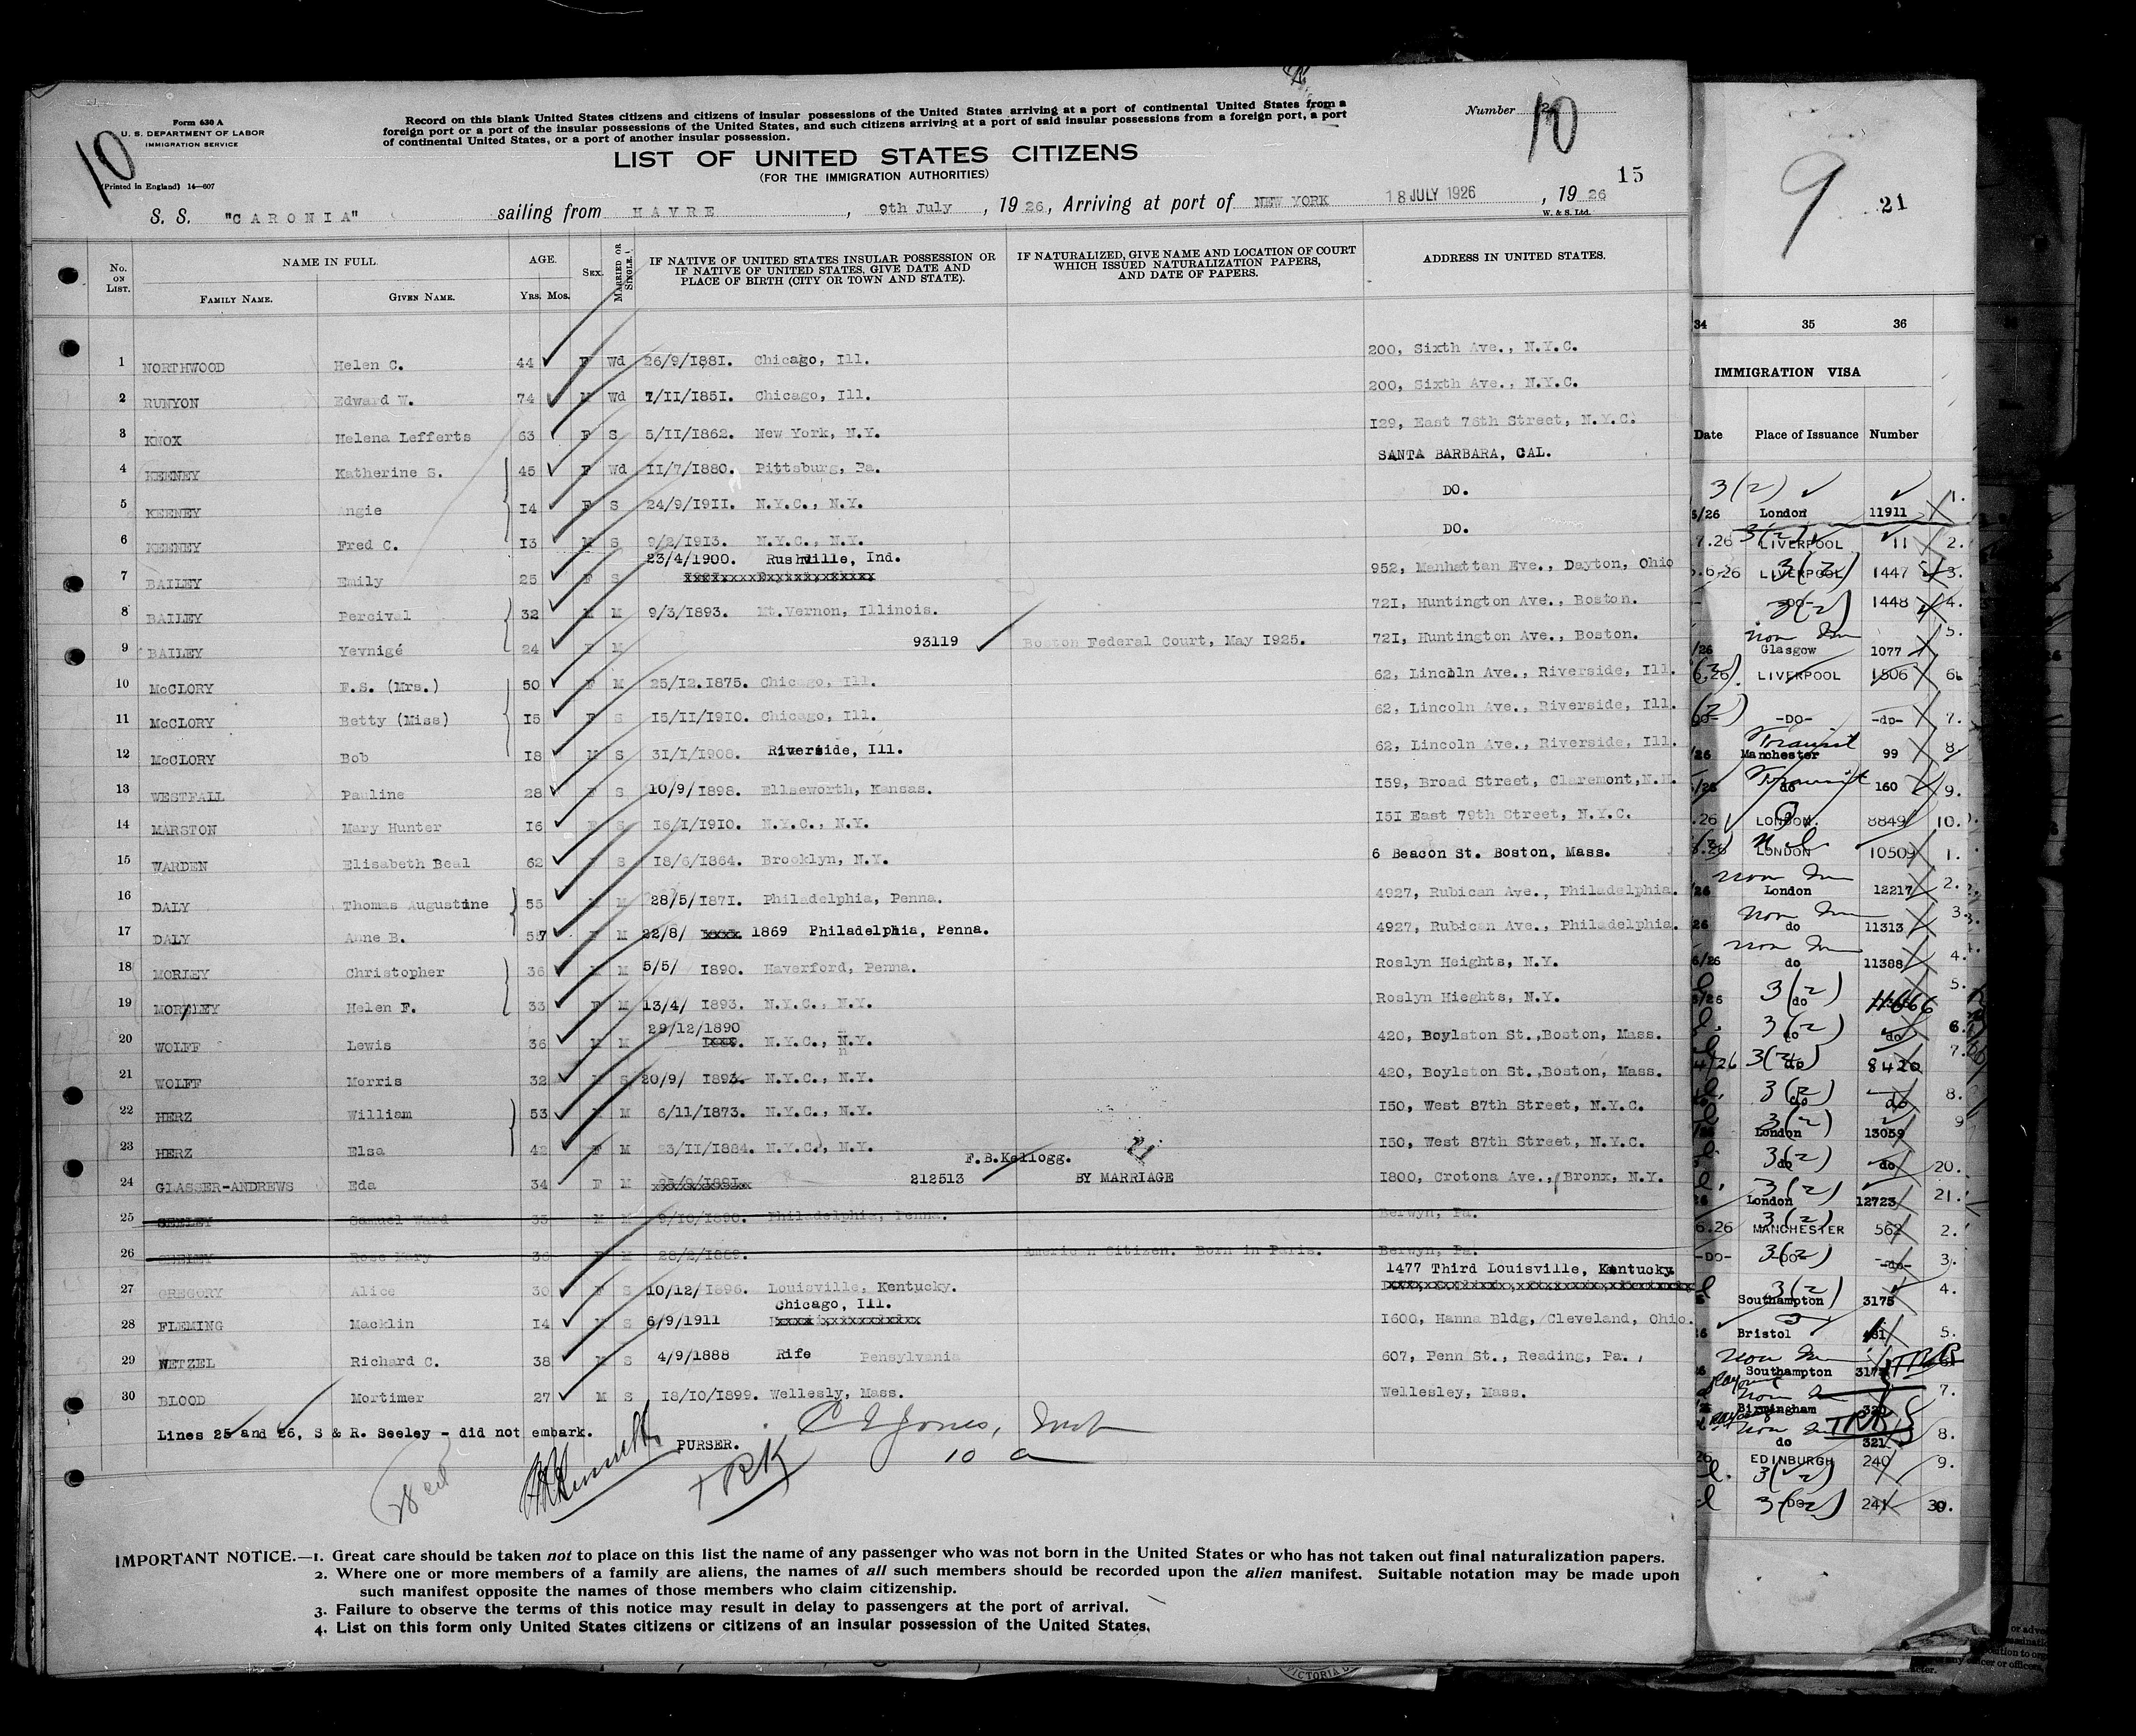 Form 630 A
U. S. DEPARTMENT OF LABOR
IMMIGRATION SERVICE
10
(Printed in England) 14—607
Record on this blank United States citizens and citizens of insular possessions of the United States arriving at a port of continental United States from a
foreign port or a port of the insular possessions of the United States, and such citizens arriving at a port of said insular possessions from a foreign port, a port
of continental United States, or a port of another insular possession.
Number
10
15
LIST OF UNITED STATES CITIZENS
(FOR THE IMMIGRATION AUTHORITIES)
S. S. "CARONIA" sailing from HAVRE, 9th July, 1926, Arriving at port of NEW YORK 18 JULY 1926, 1926
W. & S. Ltd.
No. ON LIST. NAME IN FULL. FAMILY NAME. GIVEN NAME. AGE. YRS. MOS. SEX. MARRIED OR SINGLE. IF NATIVE OF UNITED STATES INSULAR POSSESSION OR IF NATIVE OF UNITED STATES, GIVE DATE AND PLACE OF BIRTH (CITY OR TOWN AND STATE). IF NATURALIZED, GIVE NAME AND LOCATION OF COURT WHICH ISSUED NATURALIZATION PAPERS, AND DATE OF PAPERS. ADDRESS IN UNITED STATES.
1 NORTHWOOD Helen C. 44 F Wd 26/9/1881. Chicago, Ill. 200, Sixth Ave., N.Y.C.
2 RUNYON Edward W. 74 M Wd 7/11/1851. Chicago, Ill. 200, Sixth Ave., N.Y.C.
3 KNOX Helena Lefferts 63 F S 5/11/1862. New York, N.Y. 129, East 76th Street, N.Y.C.
4 KEENEY Katherine S. 45 F Wd 11/7/1880. Pittsburg, Pa. SANTA BARBARA, CAL.
5 KEENEY Angie 14 F S 24/9/1911. N.Y.C., N.Y. DO.
6 KEENEY Fred C. 13 M S 9/2/1913. N.Y.C., N.Y. DO.
7 BAILEY Emily 25 F S 23/4/1900. Rushville, Ind. 952, Manhattan Eve., Dayton, Ohio
8 BAILEY Percival 32 M M 9/3/1893. Mt.Vernon, Illinois. 721, Huntington Ave., Boston.
9 BAILEY Yevnigé 24 F M 93119 Boston Federal Court, May 1925. 721, Huntington Ave., Boston.
10 McCLORY F.S. (Mrs.) 50 F M 25/12.1875. Chicago, Ill. 62, Lincoln Ave., Riverside, Ill.
11 McCLORY Betty (Miss) 15 F S 15/11/1910. Chicago, Ill. 62, Lincoln Ave., Riverside, Ill.
12 McCLORY Bob 18 M S 31/1/1908. Riverside, Ill. 62, Lincoln Ave., Riverside, Ill.
13 WESTFALL Pauline 28 F S 10/9/1898. Ellseworth, Kansas. 159, Broad Street, Claremont, N.H.
14 MARSTON Mary Hunter 16 F S 16/1/1910. N.Y.C., N.Y. 151 East 79th Street, N.Y.C.
15 WARDEN Elisabeth Beal 62 F S 18/6/1864. Brooklyn, N.Y. 6 Beacon St. Boston, Mass.
16 DALY Thomas Augustine 55 M M 28/5/1871. Philadelphia, Penna. 4927, Rubican Ave., Philadelphia.
17 DALY Anne B. 57 F M 22/8/ 1869 Philadelphia, Penna. 4927, Rubican Ave., Philadelphia.
18 MORLEY Christopher 36 M M 5/5/ 1890. Haverford, Penna. Roslyn Heights, N.Y.
19 MORLEY Helen F. 33 F M 13/4/ 1893. N.Y.C., N.Y. Roslyn Hieghts, N.Y.
20 WOLFF Lewis 36 M M 29/12/1890 N.Y.C., N.Y. 420, Boylston St.,Boston, Mass.
21 WOLFF Morris 32 M S 20/9/ 1893. N.Y.C., N.Y. 420, Boylston St.,Boston, Mass.
22 HERZ William 53 M M 6/11/1873. N.Y.C., N.Y. 150, West 87th Street, N.Y.C.
23 HERZ Elsa 42 F M 23/11/1884. N.Y.C., N.Y. 150, West 87th Street, N.Y.C.
24 GLASSER-ANDREWS Eda 34 F M 212513 F.B.Kellogg. BY MARRIAGE 1800, Crotona Ave., Bronx, N.Y.
25 SEELEY Samuel Ward 35 M M 9/10/1890. Philadelphia, Penna. Berwyn, Pa.
26 SEELEY Rose Mary 36 F M 28/2/1889. American Citizen. Born in Paris. Berwyn, Pa.
27 GREGORY Alice 30 F S 10/12/1896. Louisville, Kentucky. 1477 Third Louisville, Kentucky
28 FLEMING Macklin 14 M S 6/9/1911 Chicago, Ill. 1600, Hanna Bldg, Cleveland, Ohio.
29 WETZEL Richard C. 38 M S 4/9/1888 Rife Pensylvania 607, Penn St., Reading, Pa.,
30 BLOOD Mortimer 27 M S 18/10/1899. Wellesly, Mass. Wellesley, Mass.
Lines 25 and 26, S & R. Seeley - did not embark.
PURSER.
C E Jones,
10 a
TRK
IMPORTANT NOTICE.—1. Great care should be taken not to place on this list the name of any passenger who was not born in the United States or who has not taken out final naturalization papers.
2. Where one or more members of a family are aliens, the names of all such members should be recorded upon the alien manifest. Suitable notation may be made upon
such manifest opposite the names of those members who claim citizenship.
3. Failure to observe the terms of this notice may result in delay to passengers at the port of arrival.
4. List on this form only United States citizens or citizens of an insular possession of the United States.
9
21
34 35 36
IMMIGRATION VISA
Date Place of Issuance Number
3(2) 1.
5/26 London 11911
7.26 LIVERPOOL 11 2.
26 LIVERPOOL 1447 3.
-DO- 1448 4.
/26 Glasgow 1077 5.
LIVERPOOL 1506 6
-DO- -do- 7.
Transit
/26 Manchester 99 8
Transit
/26 do 160 9.
.26 LONDON. 8849 10.
LONDON 10509 1.
/26 London 12217 2.
26 do 11313 3.
6/26 do 11388 4.
3(2) do 11666 5.
3(2) do do 6.
4/26 3(2) do 8420 7.
3(2) do do 8.
3(2) London 13059 9
3(2) do do 20.
3(2) London 12723 21.
6.26 MANCHESTER 562 2.
-DO- 3(2) -do- 3.
3(2) Southampton 3175 4.
Bristol 5.
Southampton
Birmingham 7.
do 321 8.
EDINBURGH 240 9.
3(2)
-DO- 241 30.